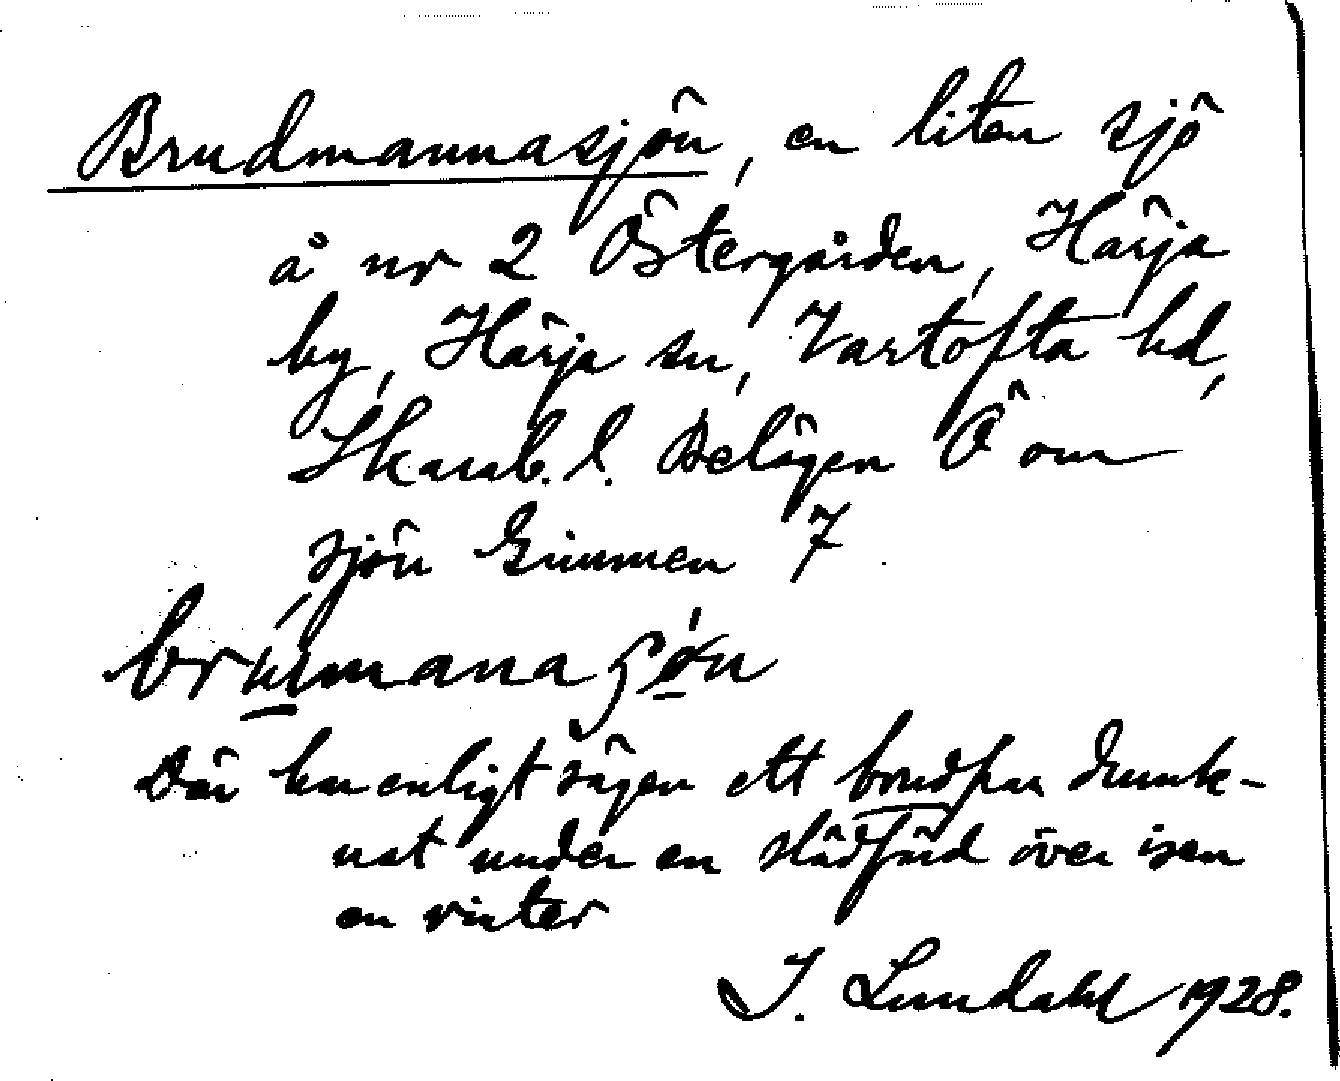 Brudmannasjön, en liten sjö
å nr 2 Östergården, Härja
by, Härja sn, Vartofta hd,
Skarab. l. Belägen Ö om
sjön Grimmen 7
Där har enligt sägen ett brudpar drunk-
nat under en slädfärd över isen
en vinter
I. Lundahl 1928.